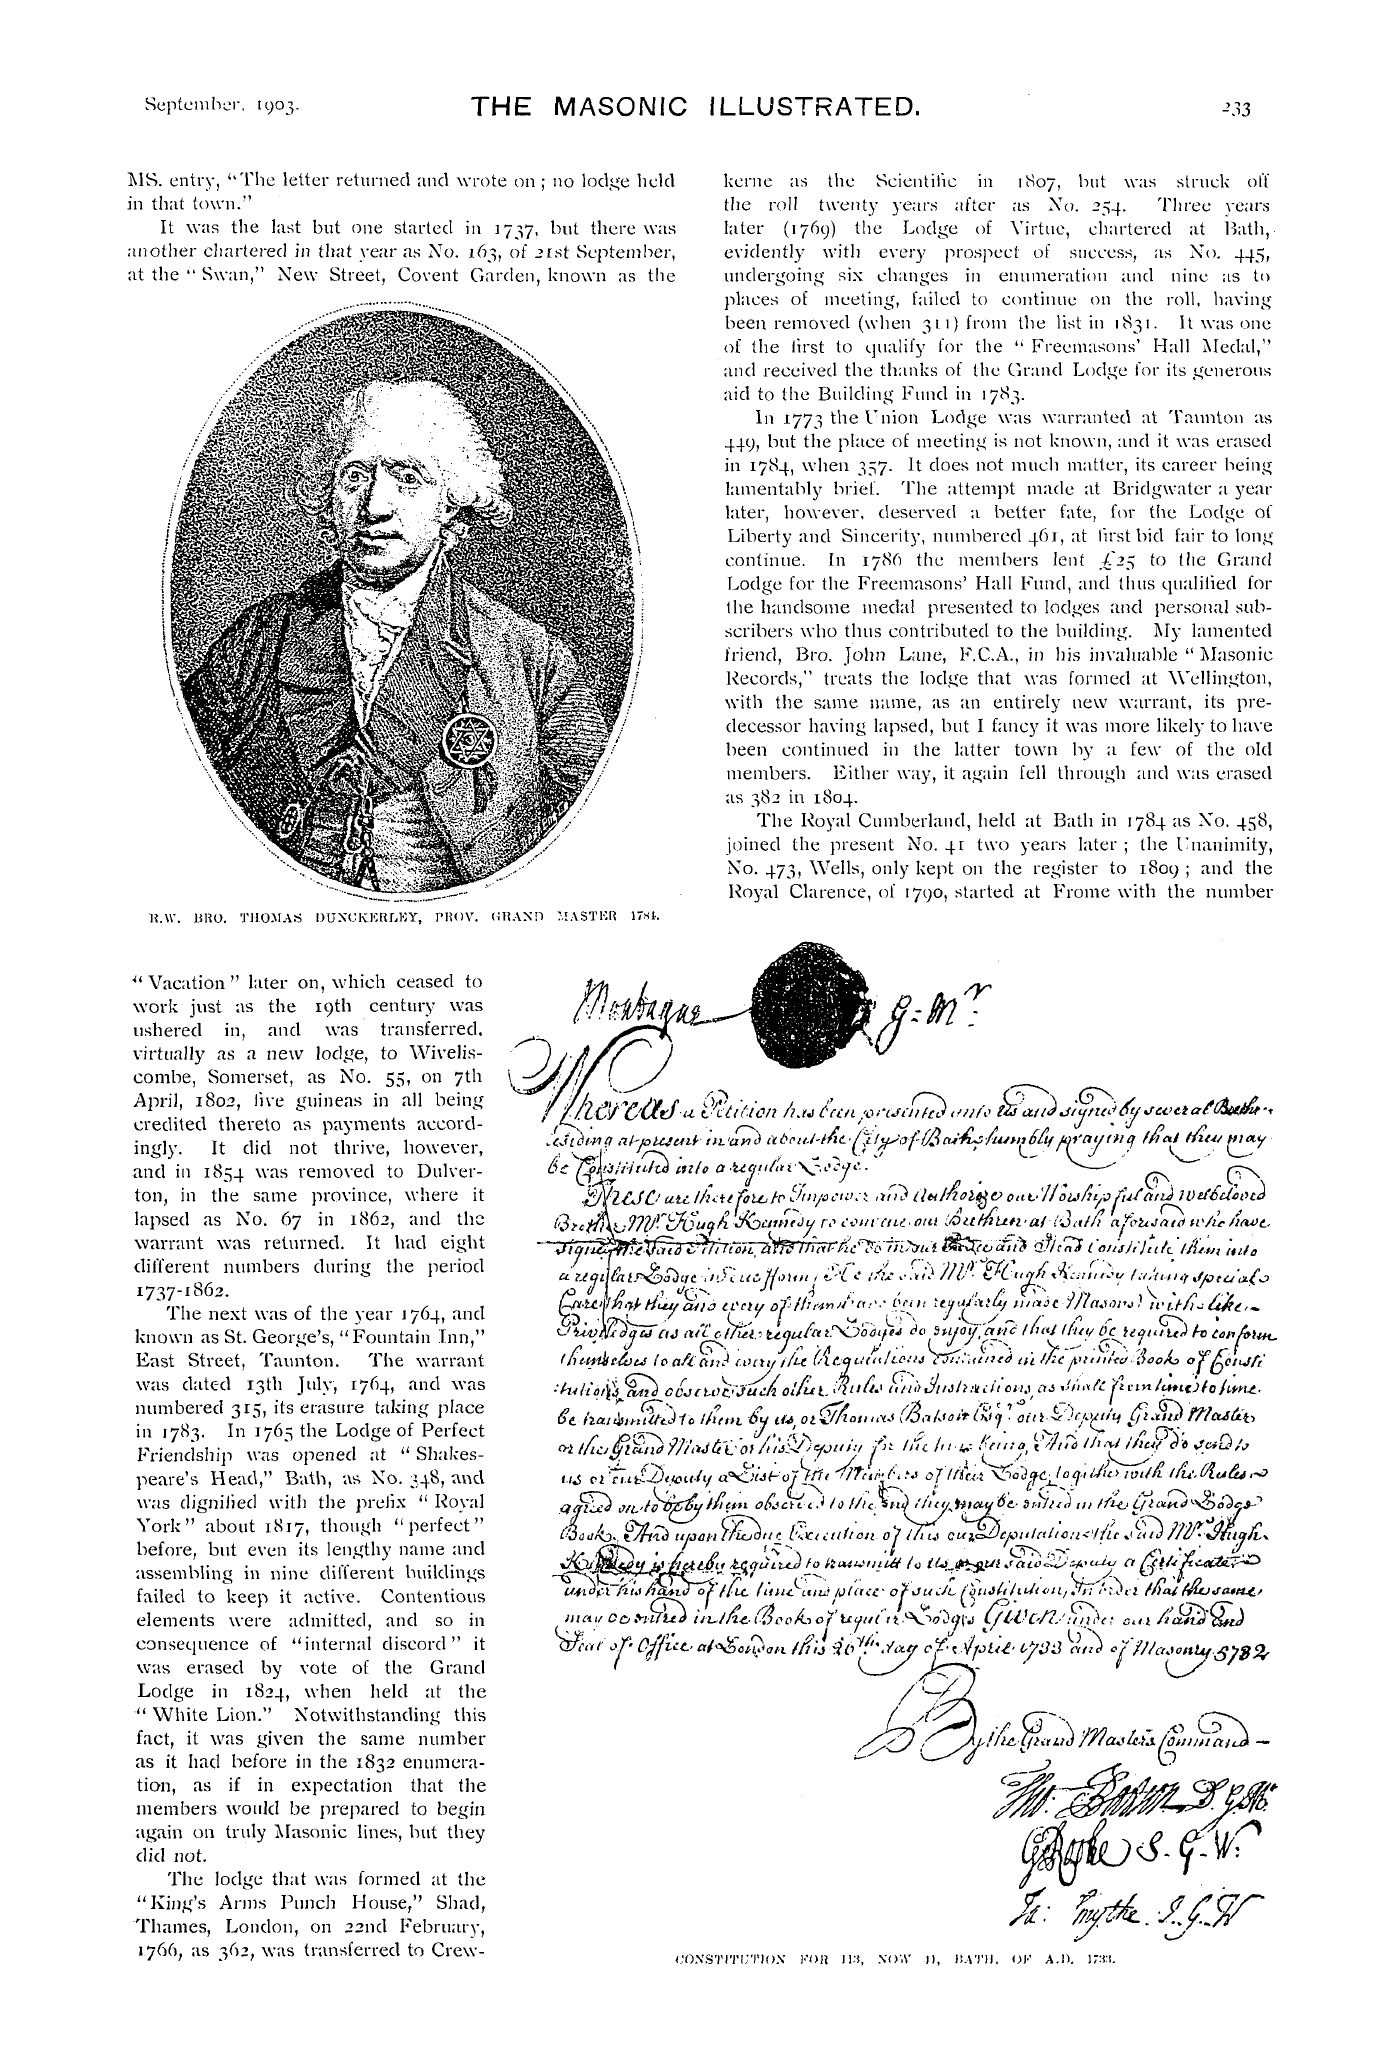 September, 1903.
THE MASONIC ILLUSTRATED.
233
MS. entry, “The letter returned and wrote on; no lodge held
in that town.”
It was the last but one started in 1737, but there was
another chartered in that year as No. 163, of 21st September,
at the “Swan,” New Street, Covent Garden, known as the
R.W. BRO. THOMAS DUNCKERLEY, PROV. GRAND MASTER 1784.
“Vacation” later on, which ceased to
work just as the 19th century was
ushered in, and was transferred,
virtually as a new lodge, to Wivelis-
combe, Somerset, as No. 55, on 7th
April, 1802, five guineas in all being
credited thereto as payments accord-
ingly. It did not thrive, however,
and in 1854 was removed to Dulver-
ton, in the same province, where it
lapsed as No. 67 in 1862, and the
warrant was returned. It had eight
different numbers during the period
1737-1862.
The next was of the year 1764, and
known as St. George's, “Fountain Inn,”
East Street, Taunton. The warrant
was dated 13th July, 1764, and was
numbered 315, its erasure taking place
in 1783. In 1765 the Lodge of Perfect
Friendship was opened at “Shakes-
peare's Head,” Bath, as No. 348, and
was dignified with the prefix “Royal
York” about 1817, though “perfect”
before, but even its lengthy name and
assembling in nine different buildings
failed to keep it active. Contentious
elements were admitted, and so in
consequence of “internal discord” it
was erased by vote of the Grand
Lodge in 1824, when held at the
“White Lion.” Notwithstanding this
fact, it was given the same number
as it had before in the 1832 enumera-
tion, as if in expectation that the
members would be prepared to begin
again on truly Masonic lines, but they
did not.
The lodge that was formed at the
“King's Arms Punch House,” Shad,
Thames, London, on 22nd February,
1766, as 362, was transferred to Crew-
kerne as the Scientific in 1807, but was struck off
the roll twenty years after as No. 254. Three years
later (1769) the Lodge of Virtue, chartered at Bath,
evidently with every prospect of success, as No. 445,
undergoing six changes in enumeration and nine as to
places of meeting, failed to continue on the roll, having
been removed (when 311) from the list in 1831. It was one
of the first to qualify for the “Freemasons' Hall Medal,”
and received the thanks of the Grand Lodge for its generous
aid to the Building Fund in 1783.
In 1773 the Union Lodge was warranted at Taunton as
449, but the place of meeting is not known, and it was erased
in 1784, when 357. It does not much matter, its career being
lamentably brief. The attempt made at Bridgwater a year
later, however, deserved a better fate, for the Lodge of
Liberty and Sincerity, numbered 461, at first bid fair to long
continue. In 1786 the members lent £25 to the Grand
Lodge for the Freemasons' Hall Fund, and thus qualified for
the handsome medal presented to lodges and personal sub-
scribers who thus contributed to the building. My lamented
friend, Bro. John Lane, F.C.A., in his invaluable “Masonic
Records,” treats the lodge that was formed at Wellington,
with the same name, as an entirely new warrant, its pre-
decessor having lapsed, but I fancy it was more likely to have
been continued in the latter town by a few of the old
members. Either way, it again fell through and was erased
as 382 in 1804.
The Royal Cumberland, held at Bath in 1784 as No. 458,
joined the present No. 41 two years later; the Unanimity,
No. 473, Wells, only kept on the register to 1809; and the
Royal Clarence, of 1790, started at Frome with the number
Montague G=Mr:
Whereas a Petition has been presented unto us and signed by several Brethr
residing at present in and about the City of Bath humbly praying that they may
be Constituted into a regular Lodge.
These are therefore to Impower and Authorize our Worshipful and welbeloved
Brother Mr. Hugh Kennedy to convene our Brethren at Bath aforesaid who have
signed the said Petition, and that he do in our Place and Stead Constitute them into
a regular Lodge in due fform, He the said Mr. Hugh Kennedy taking special
Care that they and every of them have been regularly made Masons with like
Priviledges as all other regular Lodges do enjoy, and that they be required to conform
themselves to all and every the Regulations contained in the printed Book of Consti
tutions, and observe such other Rules and Instructions, as shall from time to time
be transmitted to them by us, or Thomas Batson Esqr. our Deputy Grand Master
or the Grand Master or his Deputy for the time being, And that they do send to
us or our Deputy a List of the Members of their Lodge together with the Rules
agreed on to be by them observed to the end they may be entred in the Grand Lodge
Book. And upon the due Execution of this our Deputation the said Mr. Hugh
Kennedy is hereby required to transmitt to us, or our said Deputy a Certificate
under his hand of the time and place of such Constitution, In order that the same
may be entred in the Book of regular Lodges Given under our hand and
Seal of Office at London this 26th day of April 1733 and of Masonry 5732
By the Grand Masters Command
Tho: Batson D. G. M.
G Rooke S. G. W.
Ja: Smythe. J. G. W
CONSTITUTION FOR 113, NOW 41, BATH, OF A.D. 1733.